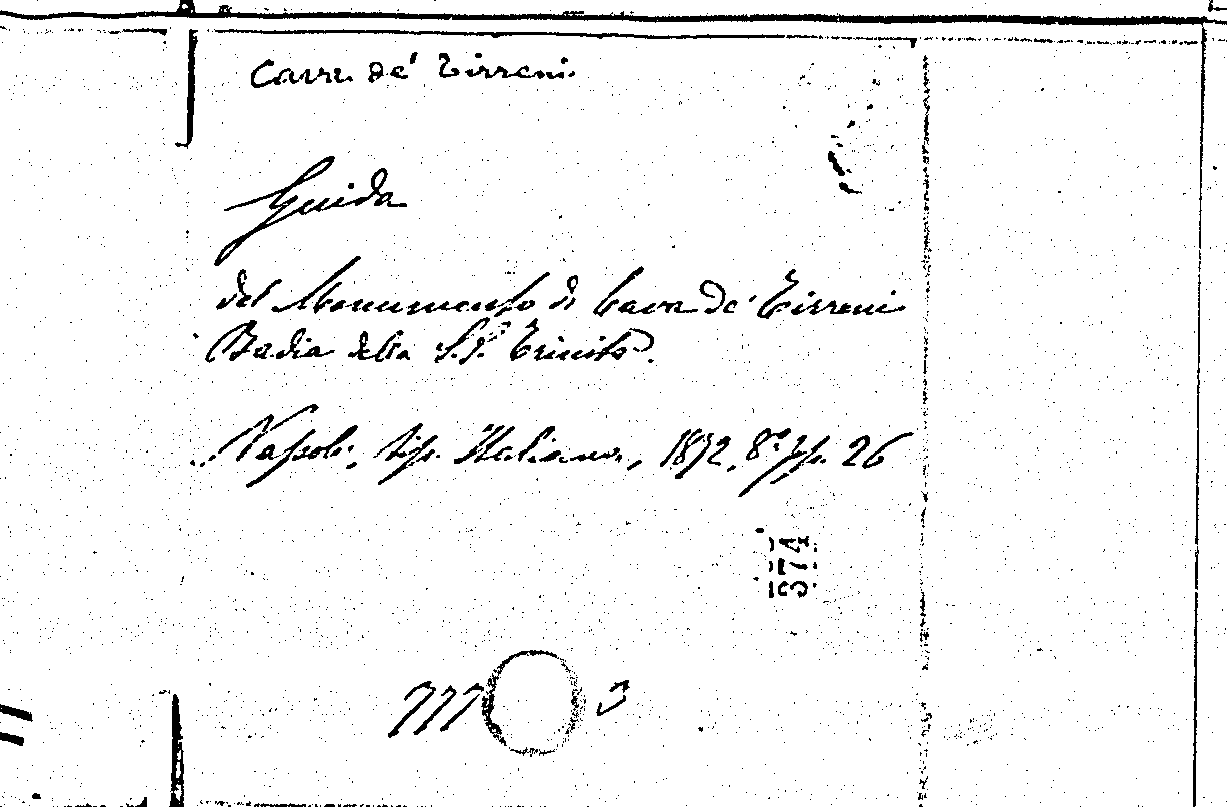 Cava de' Tirreni
Guida
del Monumento di Cava de' Tirreni
Badia della S.S. Trinità.
Napoli, tip. Italiana, 1872, 8º pp. 26
374
777 3